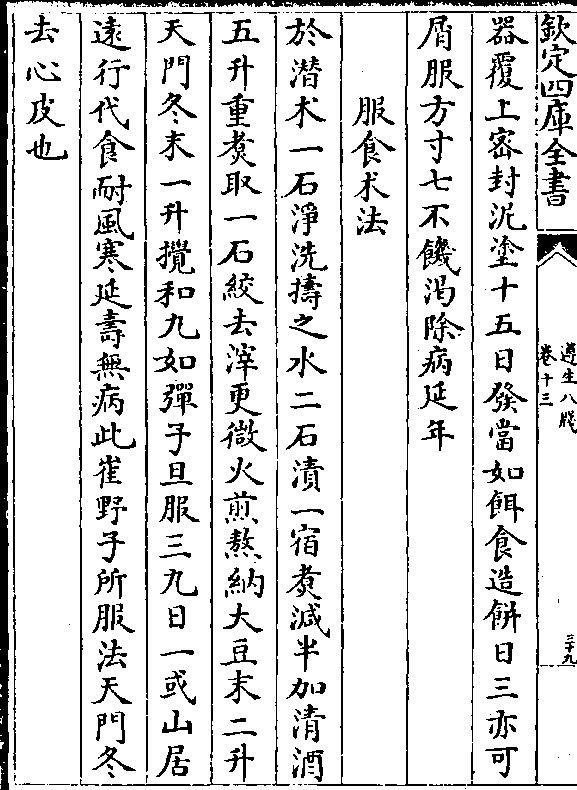 欽定四庫全書
遵生八牋
卷十三
三十九
器覆上密封泥塗十五日發當如餌食造餅日三亦可
屑服方寸七不饑渴除病延年
服食术法
於潜术一石淨洗擣之水二石漬一宿煑减半加清酒
五升重煑取一石絞去滓更微火煎熬納大豆末二升
天門冬末一升攪和丸如彈子旦服三丸日一或山居
逺行代食耐風寒延壽無病此崔野子所服法天門冬
去心皮也